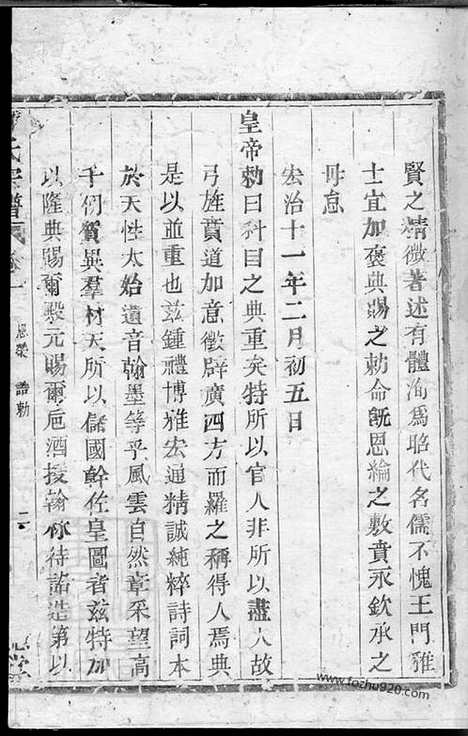 賢之精微著述有體洵爲昭代名儒不愧王門雅
士宜加褒典賜之勅命旣恩綸之敷賁永欽承之
毋怠
宏治十一年二月初五日
皇帝勅曰科目之典重矣特所以官人非所以盡人故
弓旌賁道加意徵辟廣四方而羅之稱得人焉典
是以並重也兹鍾禮博雅宏通精誠純粹詩詞本
於天性太始遺音翰墨等乎風雲自然章采望高
千仞質異羣材天所以儲國幹佐皇圖者兹特加
以隆典賜爾 元賜爾卮酒援翰 待詔 第以
氏宗譜 卷一
恩榮
誥勅
二
堂
www.fozhu920.com